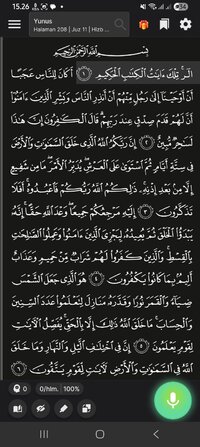 15.26
24
Yunus
Halaman 208 | Juz 11 | Hizb
بِسْمِ اللَّهِ الرَّحْمَٰنِ الرَّحِيمِ
الٓر ۚ تِلْكَ ءَايَٰتُ الْكِتَٰبِ الْحَكِيمِ ١ أَكَانَ لِلنَّاسِ عَجَبًا
أَنْ أَوْحَيْنَآ إِلَىٰ رَجُلٍ مِّنْهُمْ أَنْ أَنذِرِ النَّاسَ وَبَشِّرِ الَّذِينَ ءَامَنُوٓا۟
أَنَّ لَهُمْ قَدَمَ صِدْقٍ عِندَ رَبِّهِمْ ۗ قَالَ الْكَٰفِرُونَ إِنَّ هَٰذَا
لَسَٰحِرٌ مُّبِينٌ ٢ إِنَّ رَبَّكُمُ اللَّهُ الَّذِى خَلَقَ السَّمَٰوَٰتِ وَالْأَرْضَ
فِى سِتَّةِ أَيَّامٍ ثُمَّ اسْتَوَىٰ عَلَى الْعَرْشِ ۖ يُدَبِّرُ الْأَمْرَ ۖ مَا مِن شَفِيعٍ
إِلَّا مِنۢ بَعْدِ إِذْنِهِۦ ۚ ذَٰلِكُمُ اللَّهُ رَبُّكُمْ فَاعْبُدُوهُ ۚ أَفَلَا
تَذَكَّرُونَ ٣ إِلَيْهِ مَرْجِعُكُمْ جَمِيعًا ۖ وَعْدَ اللَّهِ حَقًّا ۚ إِنَّهُۥ
يَبْدَؤُا۟ الْخَلْقَ ثُمَّ يُعِيدُهُۥ لِيَجْزِىَ الَّذِينَ ءَامَنُوا۟ وَعَمِلُوا۟ الصَّٰلِحَٰتِ
بِالْقِسْطِ ۚ وَالَّذِينَ كَفَرُوا۟ لَهُمْ شَرَابٌ مِّنْ حَمِيمٍ وَعَذَابٌ
أَلِيمٌۢ بِمَا كَانُوا۟ يَكْفُرُونَ ٤ هُوَ الَّذِى جَعَلَ الشَّمْسَ
ضِيَآءً وَالْقَمَرَ نُورًا وَقَدَّرَهُۥ مَنَازِلَ لِتَعْلَمُوا۟ عَدَدَ السِّنِينَ
وَالْحِسَابَ ۚ مَا خَلَقَ اللَّهُ ذَٰلِكَ إِلَّا بِالْحَقِّ ۚ يُفَصِّلُ الْءَايَٰتِ
لِقَوْمٍ يَعْلَمُونَ ٥ إِنَّ فِى اخْتِلَٰفِ الَّيْلِ وَالنَّهَارِ وَمَا خَلَقَ
اللَّهُ فِى السَّمَٰوَٰتِ وَالْأَرْضِ لَءَايَٰتٍ لِّقَوْمٍ يَتَّقُونَ ٦
0
0/hlm.
100%